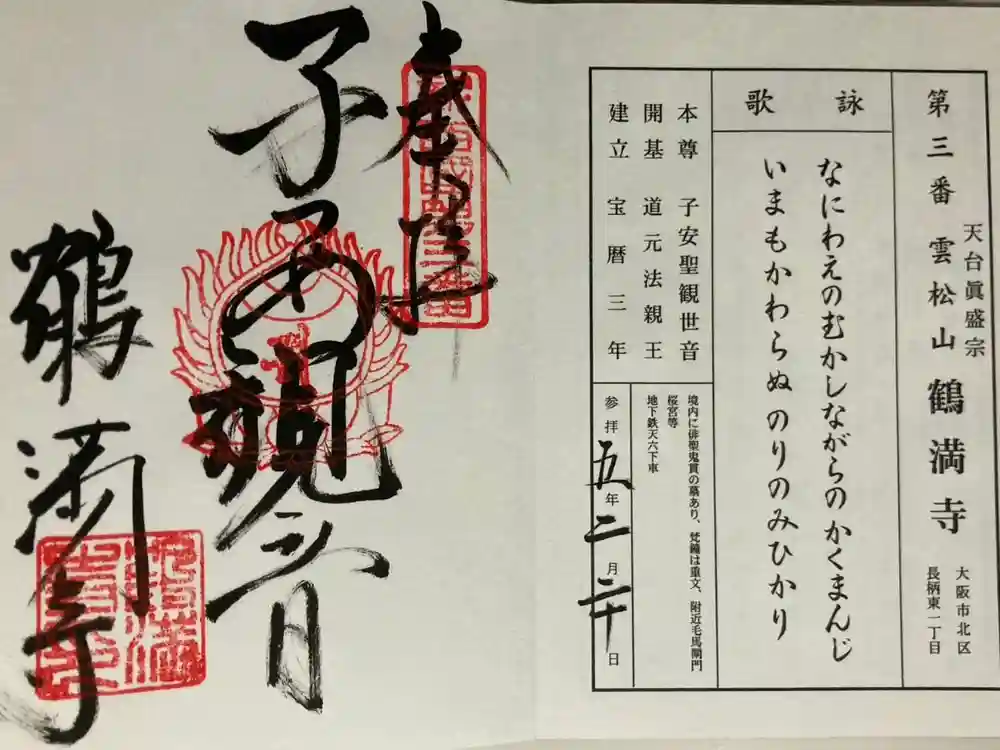 第三番 雲松山 鶴満寺
天台眞盛宗
大阪市北区
長柄東一丁目
詠歌
なにわえのむかしながらのかくまんじ
いまもかわらぬのりのみひかり
本尊 子安聖観世音
開基 道元法親王
建立 宝暦三年
境内に俳聖鬼貫の墓あり、梵鐘は重文、附近毛馬閘門
桜宮等
地下鉄天六下車
参拝五年二月二十日
奉拝
子安観世音
鶴満寺